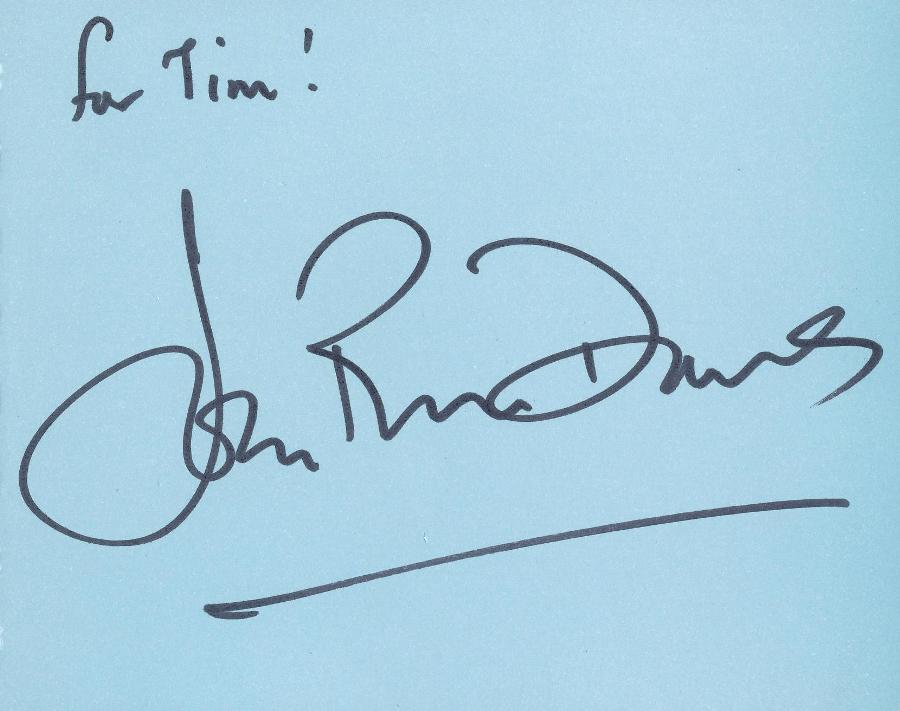 for Tim!
John Rhys Davies